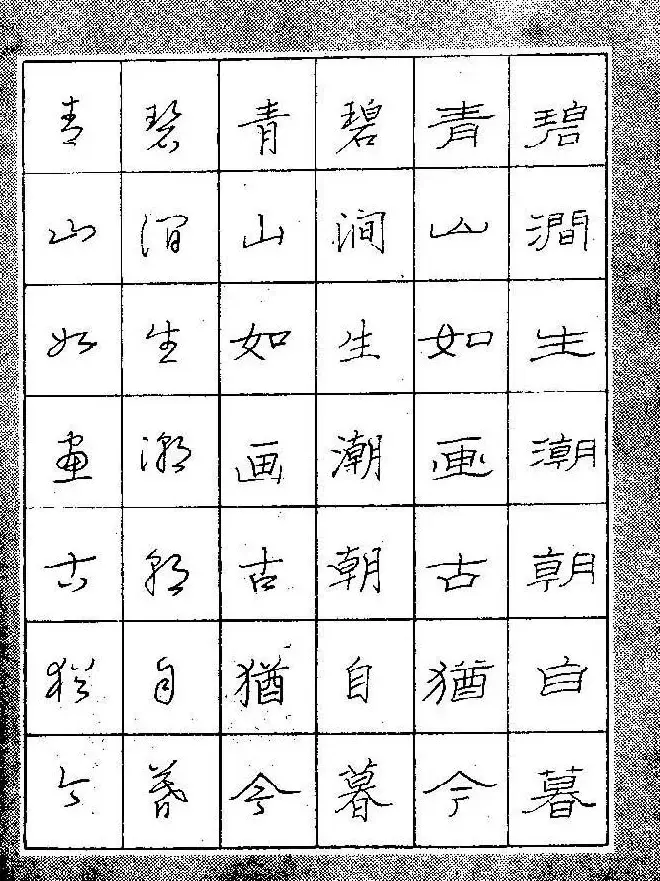 碧澗生潮朝自暮
青山如画古猶今
碧涧生潮朝自暮
青山如画古猶今
碧涧生潮朝自暮
青山如畫古猶今